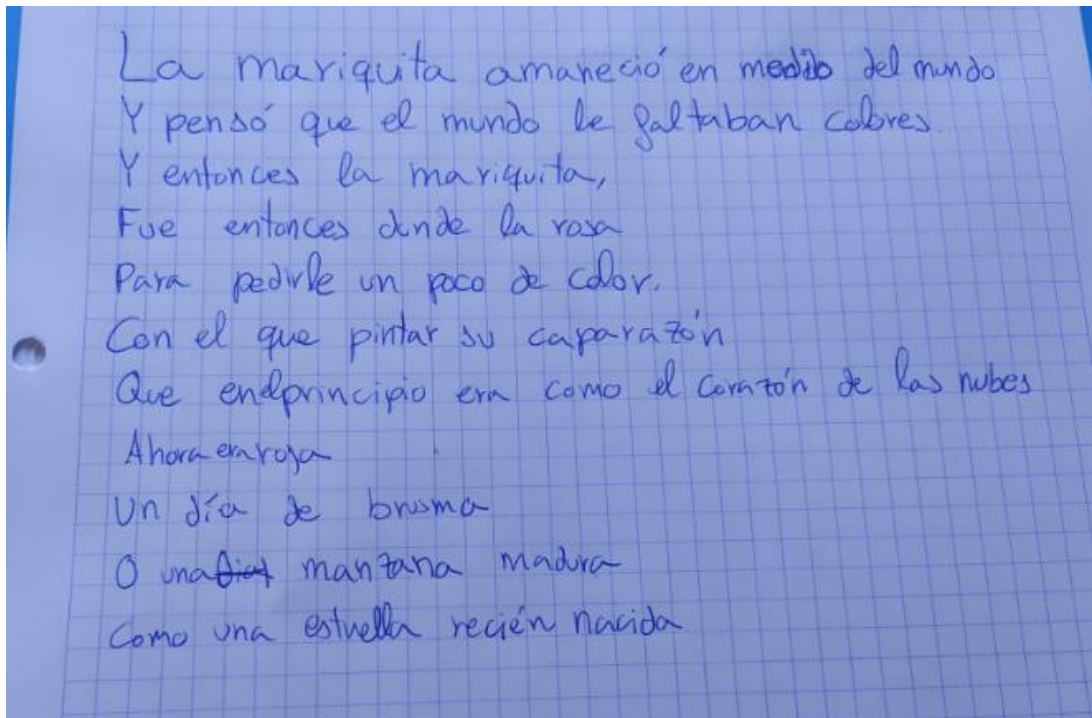 La mariquita amaneció en medio del mundo
Y pensó que el mundo le faltaban colores.
Y entonces la mariquita,
Fue entonces donde la rosa
Para pedirle un poco de color.
Con el que pintar su caparazón
Que enelprincipio era como el corazón de las nubes
Ahora era roja
Un día de brusma
O una manzana madura
Como una estrella recién nacida